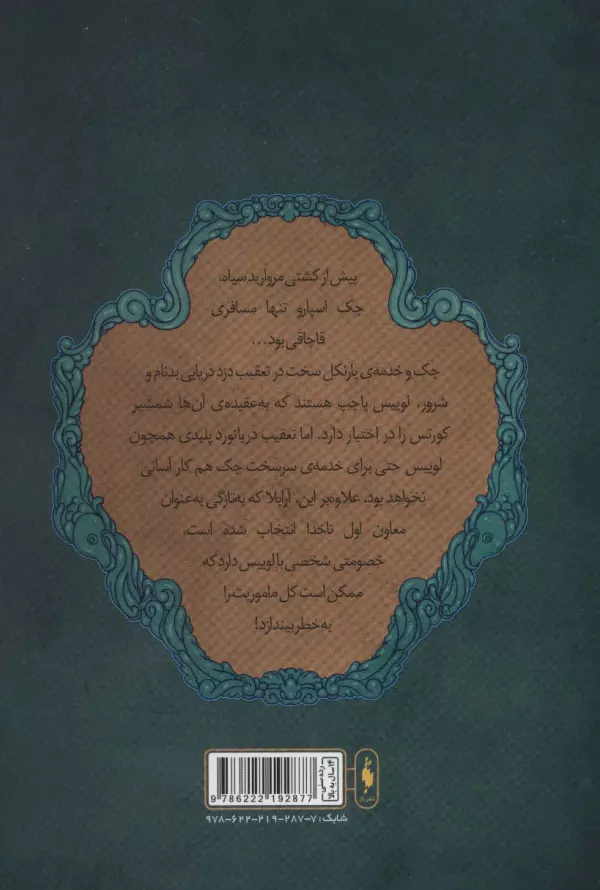 پیش از کشتی مروارید سیاه،
جک اسپارو تنها مسافری
قاچاقی بود...
جک و خدمه‌ی بارنکل سخت در تعقیب دزد دریایی بدنام و
شرور، لوییس پاچپ هستند که به‌عقیده‌ی آن‌ها شمشیر
کورتس را در اختیار دارد. اما تعقیب دریانورد پلیدی همچون
لوییس حتی برای خدمه‌ی سرسخت جک هم کار آسانی
نخواهد بود. علاوه‌بر این، آرابلا که به‌تازگی به‌عنوان
معاون اول ناخدا انتخاب شده است،
خصومتی شخصی با لوییس دارد که
ممکن است کل ماموریت را
به خطر بیندازد!
رده‌سنی
۱۴ سال به بالا
9 786222 192877
شابک: ۹۷۸-۶۲۲-۲۱۹-۲۸۷-۷